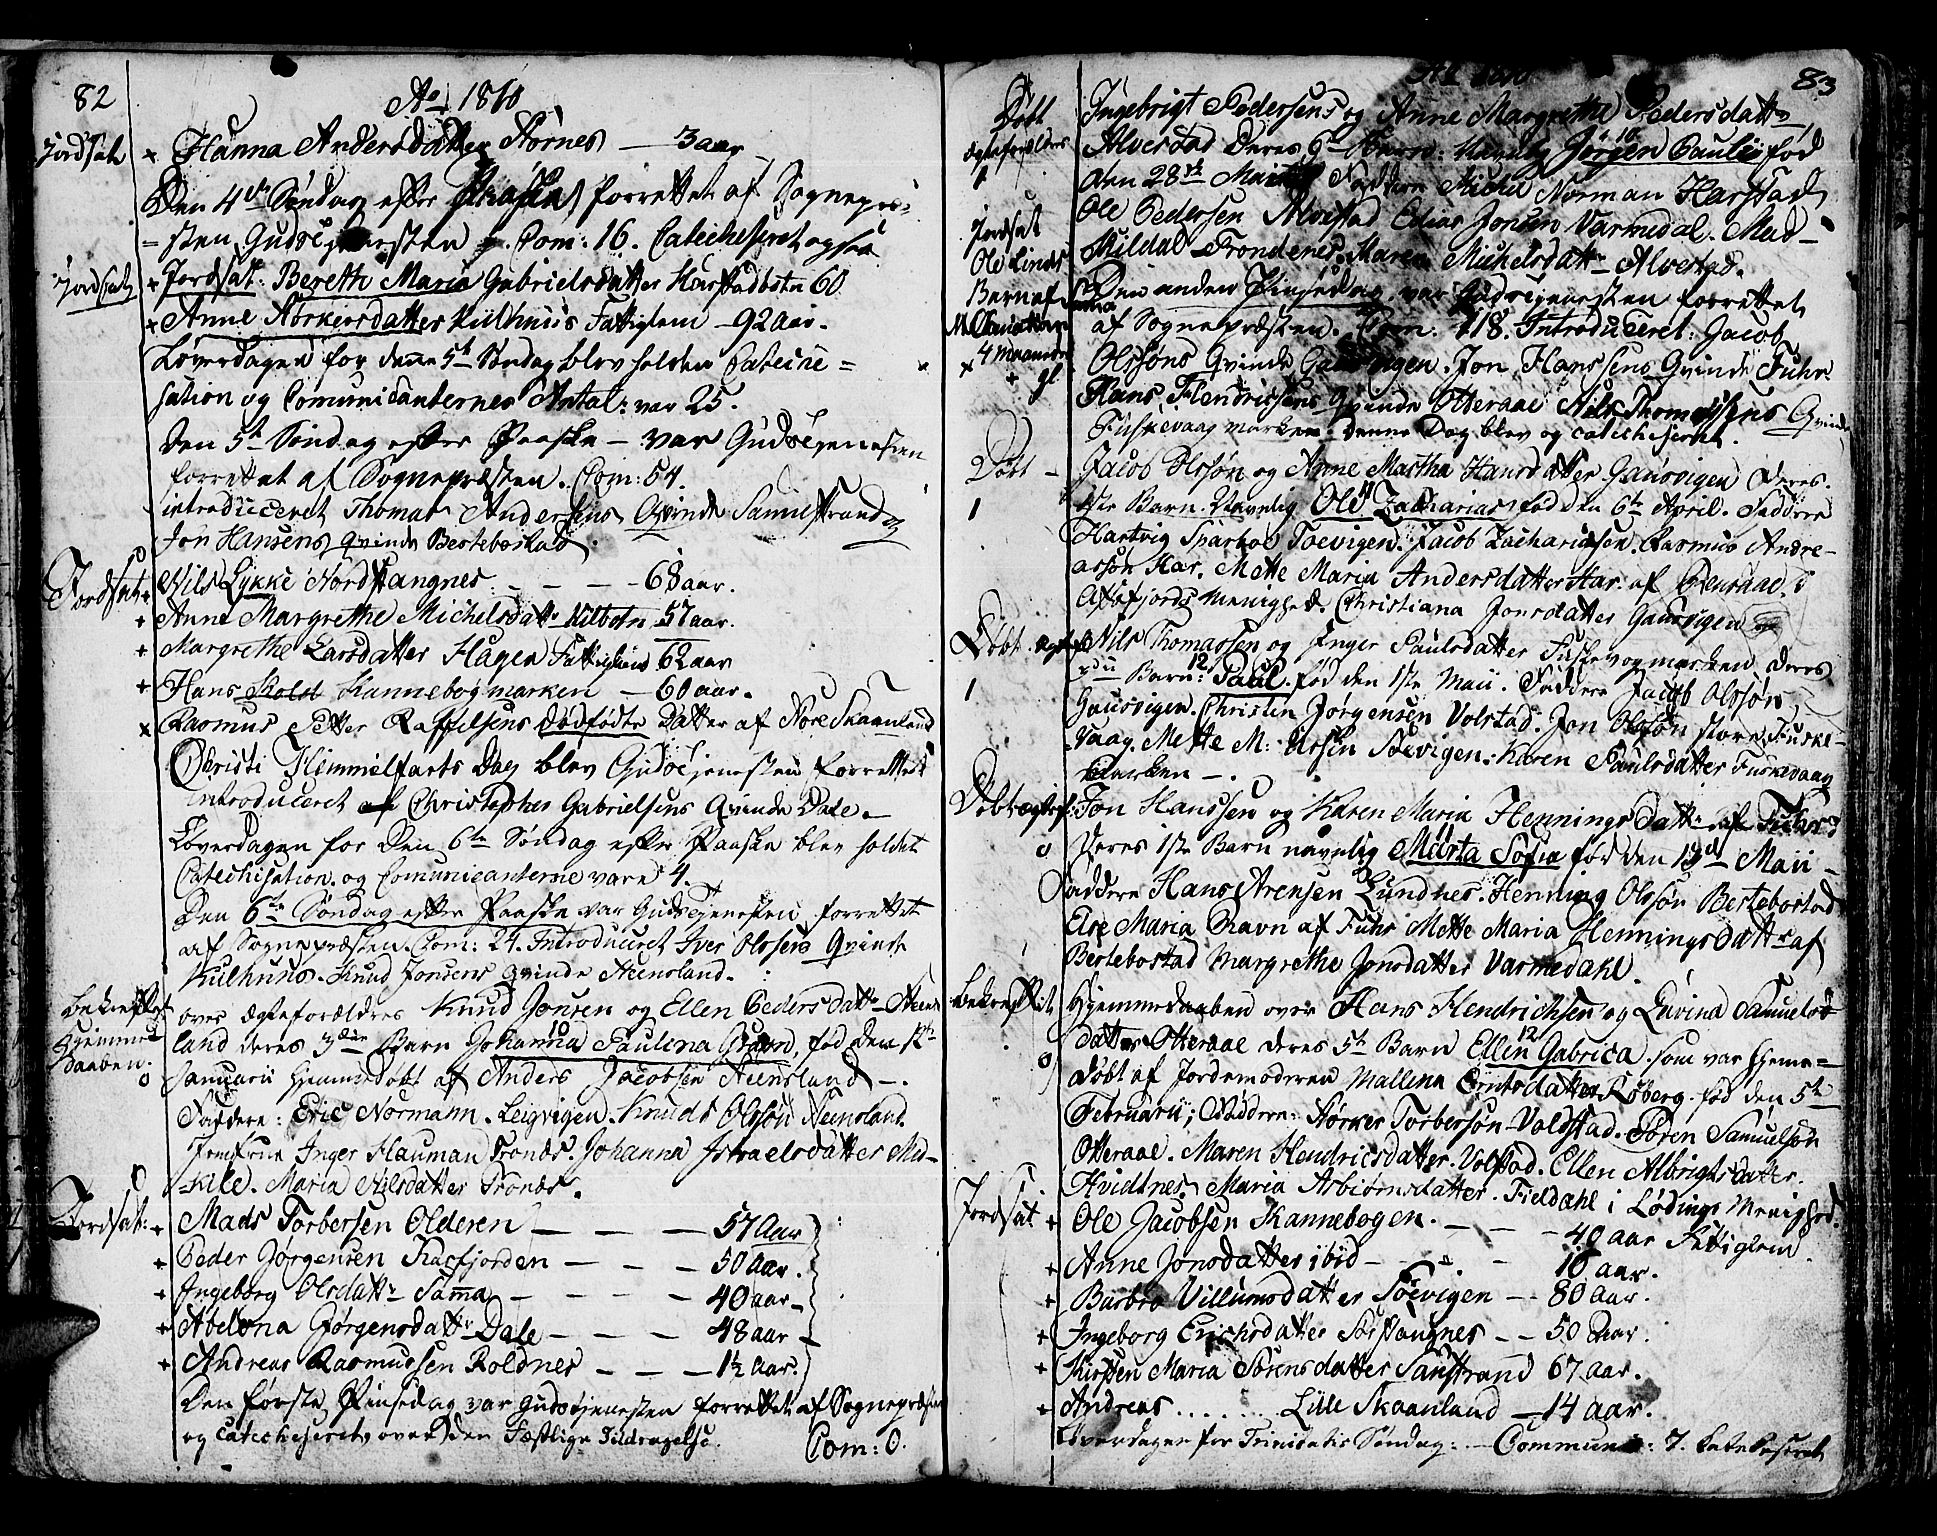 82
Ao 1810
Jordsat + Hanna Andersdatter Stornes — 3 aar
Den 4de Søndag efter Paaske forrettet af Sognepræ-
=sten Gudstjenesten Com: 16. Catechiseret ogsaa
Jordsat + Jordsat: Bereth Maria Gabrielsdatter Harstadbotn 60
+ Anne Størkersdatter Kulhuus Fattiglem — 92 aar.
Løverdagen for denne 5te Søndag blev holden Cateche=
sation og Comunicanternes Antal: var 25.
Den 5te Søndag efter Paaske — var Gudstjenesten
forrettet af Sognepræsten. Com: 54.
introduceret Thomas Andersens Qvinde Sannestrand og
Jon Hansens Qvinde Bertebostad.
Jordsat + Nils Lykke Nordstangnes — — — 68 aar.
+ Anne Margrethe Michelsdattr Kilbotn 57 aar.
+ Margrethe Larsdatter Hagen Fattiglem 62 aar
+ Hans Skold Kannebogmarken — 60 aar.
x Rasmus Petter Raffelsens dødfødte Datter af Nøre Skaanland
Christi Himmelfarts Dag blev Gudstjenesten forrettet
Introduceret af Christopher Gabrielsens Qvinde Dale.
Løverdagen for Den 6te Søndag efter Paaske blev holdet
Catechisation og Comunicanterne vare 4.
Den 6te Søndag efter Paaske var Gudstjenesten forrettet
af Sognepræsten. Com: 24. Introduceret Iver Olsens Qvinde
Kulhuus. Knud Jonsens Qvinde Steensland.
Bekræftet Hjemmedaaben. over Ægteforældres Knud Jonsen og Ellen Pedersdattr Steens-
land deres 3die Barn Johanna Paulena Gravn, fød den 12te
Januarii hjemmedøbt af Anders Jacobsen Steensland —.
Faddere: Eric Normann. Leigvigen. Knud Olssøn Steensland.
Jomfrue Inger Hauman Tronæs. Johanna Israelsdatter Mel-
kile. Maria Nilsdatter Tronæs.
Jordsat: + Mads Torbersen Olderen — — — 57 Aar
+ Peder Jørgensen Kasfjorden — — — 50 Aar.
+ Ingeborg Olsdattr Sama — — — 40 aar
+ Abelona Jørgensdattr Dale — — — 48 aar
+ Andreas Rasmussen Roldnes — — — 1½ Aar.
Den første Pinsedag var Gudstjenesten forrettet af Sognepræsten
og catechiseret over den Festlige Tildragelse. Com: 0.
83
Døbt Ingebrigt Pedersens og Anne Margrethe Pedersdattr
Ægteforældres Alvestad Deres 9de Barn: Navnlig Jørgen Paulii fød
1 den 28de Martii Faddere Michel Norman Harstad
Jordsat Ole Pedersen Alvestad Elias Jonsen Varmedal. Mad-
Ole Linds Skildal Trondenes Maren Michelsdattr Alvestad.
Barn af Den anden Pinsedag var Gudstjenesten forrettet
af Sognepræsten. Com: 118. Introduceret: Jacob
4 Maaneder Olssøns Qvinde Gausvigen. Jon Hanssens Qvinde Fuhr
gl. Hans Hendricssens Qvinde Otteraae Nils Thomassens Qvinde
Fuskevaag marken. denne Dag blev og catechiseret.
Døbt — Jacob Olssøn og Anne Martha Hansdatter Gausvigen Deres
1 1ste Barn. Navnlig Ole Zacharias fød den 6te April. Faddere
Hartvig Sparboe Soevigen. Jacob Zachariasen. Rasmus Andre-
assøn Kar. Mette Maria Andersdatter Kar. af Rensaae i
Astafjords Menighed. Christiana Jonsdatter Gausvigen
Døbt Nils Thomassen og Inger Paulsdatter Fuskevogmarken deres
1 Barn: Paul. fød den 1ste Maii. Faddere Jacob Olssøn
Gausvigen. Christen Jørgensen Volstad. Jon Olssøn store Fuske-
vaag. Mette M: Ursin Soevigen. Karen Paulsdatter Fuskevaag
marken —.
Døbt Ægtef: Jon Hanssen og Karen Maria Henningsdattr af Fuhr
0 Deres 1ste Barn navnlig Marta Sofia fød den 13de Maii —
Faddere Hans Arensen Lundnes. Henning Olssøn Bertebostad
Else Maria Ravn af Fuhr Mette Maria Henningsdattr af
Bertebostad Margrethe Jonsdatter Varmedahl.
Bekræftet Hjemmedaaben over Hans Hendrichsen og Lavina Samuels-
datter Otteraae deres 5te Barn Ellen Gabrica som var hjeme=
0 døbt af Jordemoderen Mallena Erntsdatter Røberg. fød den 5te
Februarii; Faddere: Størker Torbersøn Voldstad. Søren Samuelsøn
Otteraae. Maren Hendricsdatter. Volstad. Ellen Albrigtsdatter.
Hvidtnes. Maria Arbiørnsdatter. Fieldahl i Lødings Menighed.
Jordsat + Ole Jacobsen Kannebogen. — — — 40 aar Fattiglem.
+ Anne Jonsdatter ibid — — — 10 aar.
+ Barbro Villumsdatter Soevigen — — 80 Aar.
+ Ingeborg Erichsdatter Sørstangnes — — 50 Aar.
+ Kirsten Maria Sørensdatter Sanstrand 67 aar.
+ Andreas ....... Lille Skaanland — 14 aar.
Løverdagen for Trinitatis Søndag: — Commun: 7. Catechiseret